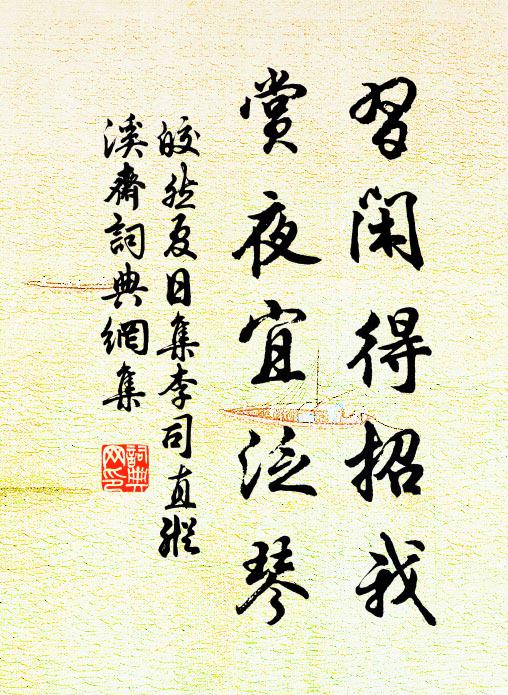 習閑得招我
賞夜宜泛琴
皎然夏日集李司直縱
溪齋詞典網集
詞典网印